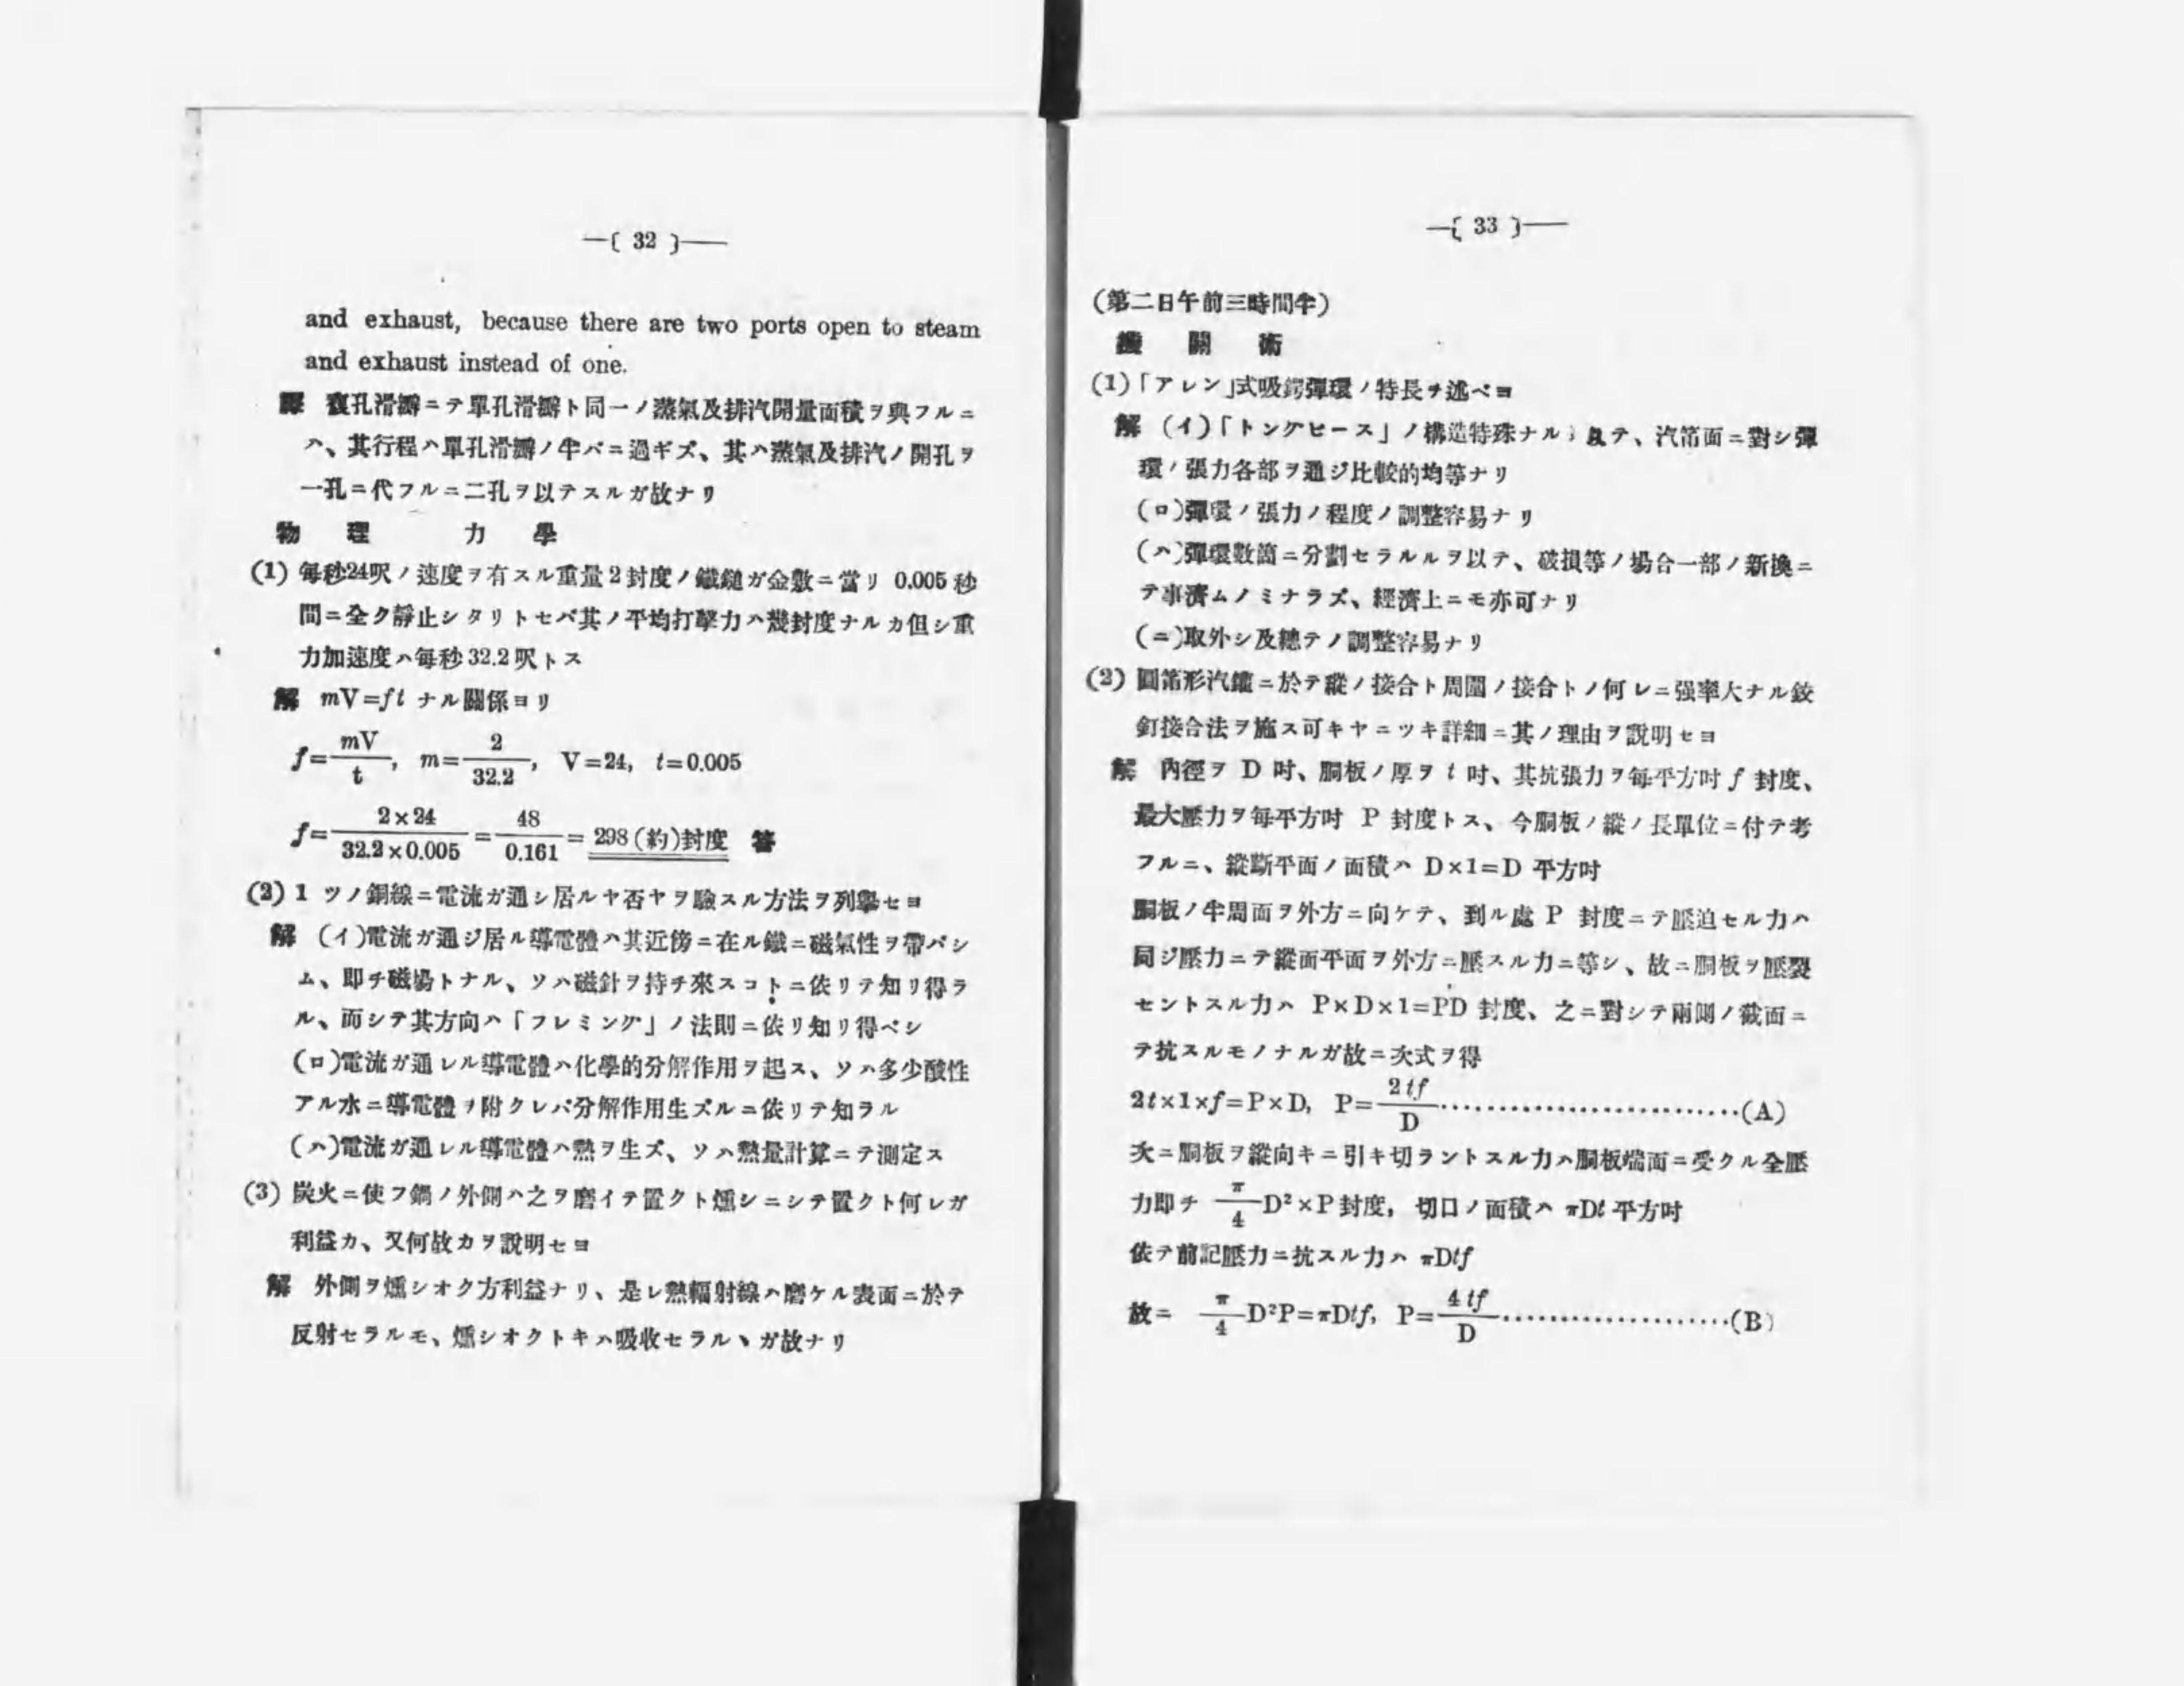 —[ 32 ]—
and exhaust, because there are two ports open to steam
and exhaust instead of one.
譯 複孔滑瓣ニテ單孔滑瓣ト同一ノ蒸氣及排汽開量面積ヲ與フルニ
ハ、其行程ハ單孔滑瓣ノ半バニ過ギズ、其ハ蒸氣及排汽ノ開孔ヲ
一孔ニ代フルニ二孔ヲ以テスルガ故ナリ
物理 力學
(1) 每秒24呎ノ速度ヲ有スル重量2封度ノ鐵鎚ガ金敷ニ當リ 0.005 秒
間ニ全ク靜止シタリトセバ其ノ平均打擊力ハ幾封度ナルカ但シ重
力加速度ハ每秒32.2呎トス
解 mV=ft ナル關係ヨリ
f=mV/t, m=2/32.2, V=24, t=0.005
f=2×24/32.2×0.005=48/0.161=298(約)封度 答
(2) 1 ツノ銅線ニ電流ガ通シ居ルヤ否ヤヲ驗スル方法ヲ列擧セヨ
解 (イ)電流ガ通ジ居ル導電體ハ其近傍ニ在ル鐵ニ磁氣性ヲ帶バシ
ム、即チ磁場トナル、ソハ磁針ヲ持チ來スコトニ依リテ知リ得ラ
ル、而シテ其方向ハ「フレミング」ノ法則ニ依リ知リ得ベシ
(ロ)電流ガ通レル導電體ハ化學的分解作用ヲ起ス、ソハ多少酸性
アル水ニ導電體ヲ附クレバ分解作用生ズルニ依リテ知ラル
(ハ)電流ガ通レル導電體ハ熱ヲ生ズ、ソハ熱量計算ニテ測定ス
(3) 炭火ニ使フ鍋ノ外側ハ之ヲ磨イテ置クト燻シニシテ置クト何レガ
利益カ、又何故カヲ說明セヨ
解 外側ヲ燻シオク方利益ナリ、是レ熱輻射線ハ磨ケル表面ニ於テ
反射セラルモ、燻シオクトキハ吸收セラルヽガ故ナリ
—[ 33 ]—
(第二日午前三時間半)
機關術
(1)「アレン」式吸鍔彈環ノ特長ヲ述ベヨ
解 (イ)「トングピース」ノ構造特殊ナルテ、汽筩面ニ對シ彈
環ノ張力各部ヲ通ジ比較的均等ナリ
(ロ)彈環ノ張力ノ程度ノ調整容易ナリ
(ハ)彈環數箇ニ分割セラルルヲ以テ、破損等ノ場合一部ノ新換ニ
テ事濟ムノミナラズ、經濟上ニモ亦可ナリ
(ニ)取外シ及總テノ調整容易ナリ
(2) 圓筩形汽罐ニ於テ縱ノ接合ト周圍ノ接合トノ何レニ强率大ナル鉸
釘接合法ヲ施ス可キヤニツキ詳細ニ其ノ理由ヲ說明セヨ
解 內徑ヲ D 吋、胴板ノ厚ヲ t 吋、其抗張力ヲ每平方吋 f 封度、
最大壓力ヲ每平方吋 P 封度トス、今胴板ノ縱ノ長單位ニ付テ考
フルニ、縱斷平面ノ面積ハ D×1=D 平方吋
胴板ノ半周面ヲ外方ニ向ケテ、到ル處 P 封度ニテ壓迫セル力ハ
同ジ壓力ニテ縱面平面ヲ外方ニ壓スル力ニ等シ、故ニ胴板ヲ壓裂
セントスル力ハ P×D×1=PD 封度、之ニ對シテ兩側ノ截面ニ
テ抗スルモノナルガ故ニ次式ヲ得
2t×1×f=P×D, P=2tf/D…………………………(A)
次ニ胴板ヲ縱向キニ引キ切ラントスル力ハ胴板端面ニ受クル全壓
力即チ π/4 D²×P封度, 切口ノ面積ハ πDt 平方吋
依テ前記壓力ニ抗スル力ハ πDtf
故ニ π/4 D²P=πDtf, P=4tf/D……………………(B)